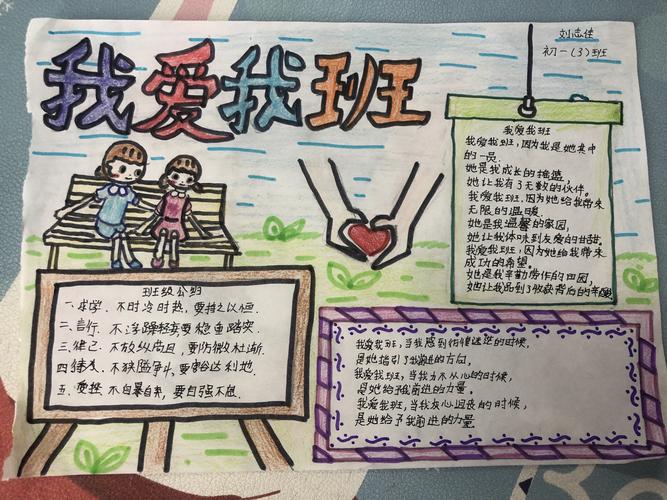 我爱我班
刘志佳
初一(3)班
我爱我班
我爱我班,因为我是她其中
的一员。
她是我成长的摇篮,
她让我有了无数的伙伴。
我爱我班,因为她给我带来
无限的温暖。
她是我温馨的家园,
她让我体味到友爱的甘甜。
我爱我班,因为她给我带来
成功的希望。
她是我辛勤劳作的田园,
她让我品到了收获背后的辛酸
班级公约
一、求学. 不时冷时热,要持之以恒.
二、言行. 不浮躁轻率要稳重踏实.
三、律己. 不放纵苟且,要防微杜渐.
四 待友. 不狭隘争斗,要豁达利他.
五. 面挫. 不自暴自弃,要自强不息.
我爱我班,当我感到彷徨迷茫的时候,
是她指引了我前进的方向。
我爱我班,当我力不从心的时候,
是她给予我前进的力量。
我爱我班,当我灰心沮丧的时候,
是她给予我前进的力量